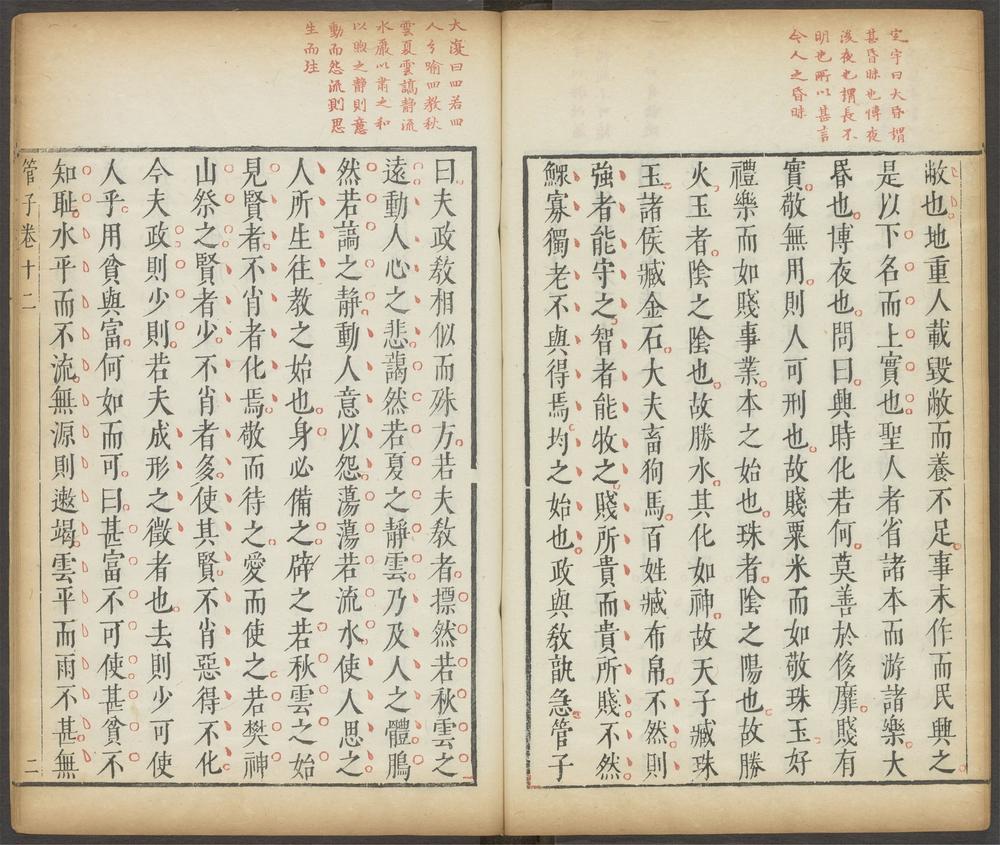 定宇曰大昏謂
甚昏昧也博夜
深夜也謂長不
明也所以甚言
令人之昏昧
敝也地重人載毀敝而養不足事末作而民興之
是以下名而上實也聖人者省諸本而游諸樂大
昏也博夜也問曰興時化若何莫善於侈靡賤有
實敬無用則人可刑也故賤粟米而如敬珠玉好
禮樂而如賤事業本之始也珠者陰之陽也故勝
火玉者陰之陰也故勝水其化如神故天子臧珠
玉諸侯臧金石大夫畜狗馬百姓臧布帛不然則
強者能守之智者能牧之賤所貴而貴所賤不然
鰥寡獨老不與得焉均之始也政與敎孰急管子
大復曰四若四
人兮喻四教秋
雲夏雲謞靜流
水嚴以肅之和
以煦之靜則意
動而怨流則思
生而往
曰夫政敎相似而殊方若夫敎者摽然若秋雲之
遠動人心之悲藹然若夏之靜雲乃及人之體鵩
然若謞之靜動人意以怨蕩蕩若流水使人思之
人所生往教之始也身必備之辟之若秋雲之始
見賢者不肖者化焉敬而待之愛而使之若樊神
山祭之賢者少不肖者多使其賢不肖惡得不化
今夫政則少則若夫成形之徵者也去則少可使
人乎用貧與富何如而可曰甚富不可使甚貧不
知耻水平而不流無源則遫竭雲平而雨不甚無
管子卷十二
二